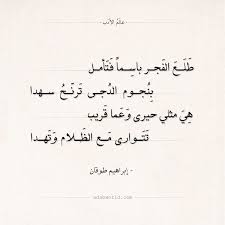 عالم الأدب
طَلَعَ الفَجر باسِماً فَتَأمل
بِنُجوم الدُجى تَرنّحُ سهدا
هِيَ مثلي حيرى وَعَما قَريب
تَتَوارى مَع الظَلام وَتهدا
- إبراهيم طوقان -
adabworld.com